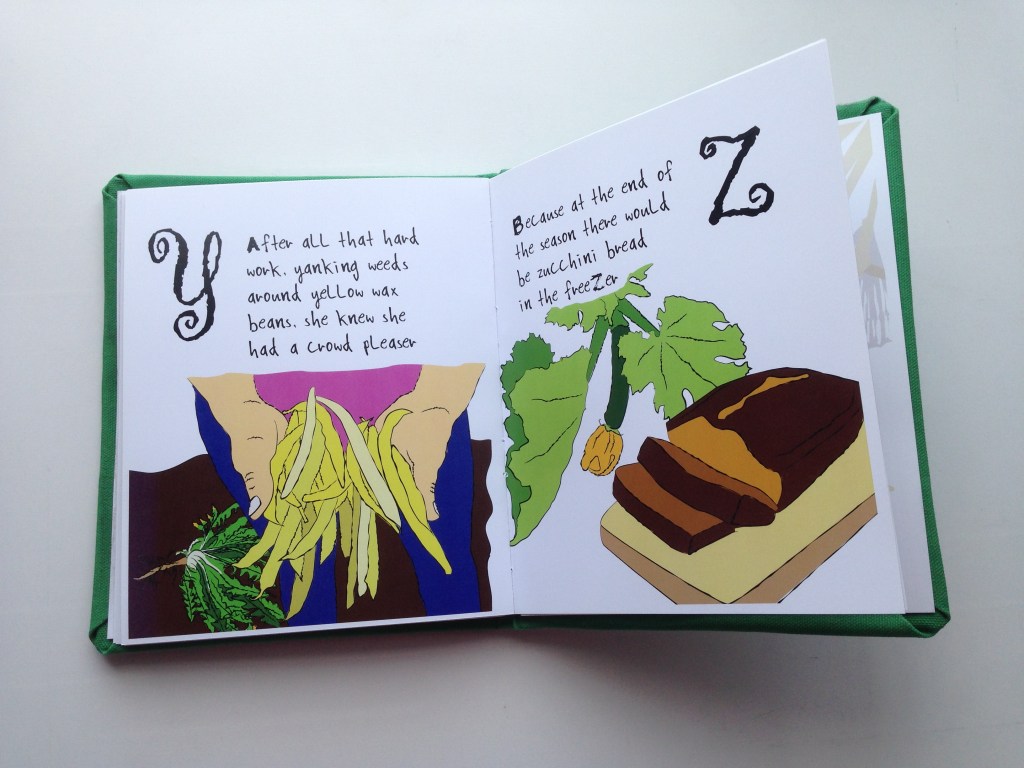 Y
After all that hard
work, yanking weeds
around yellow wax
beans, she knew she
had a crowd pleaser
Z
Because at the end of
the season there would
be zucchini bread
in the freeZer